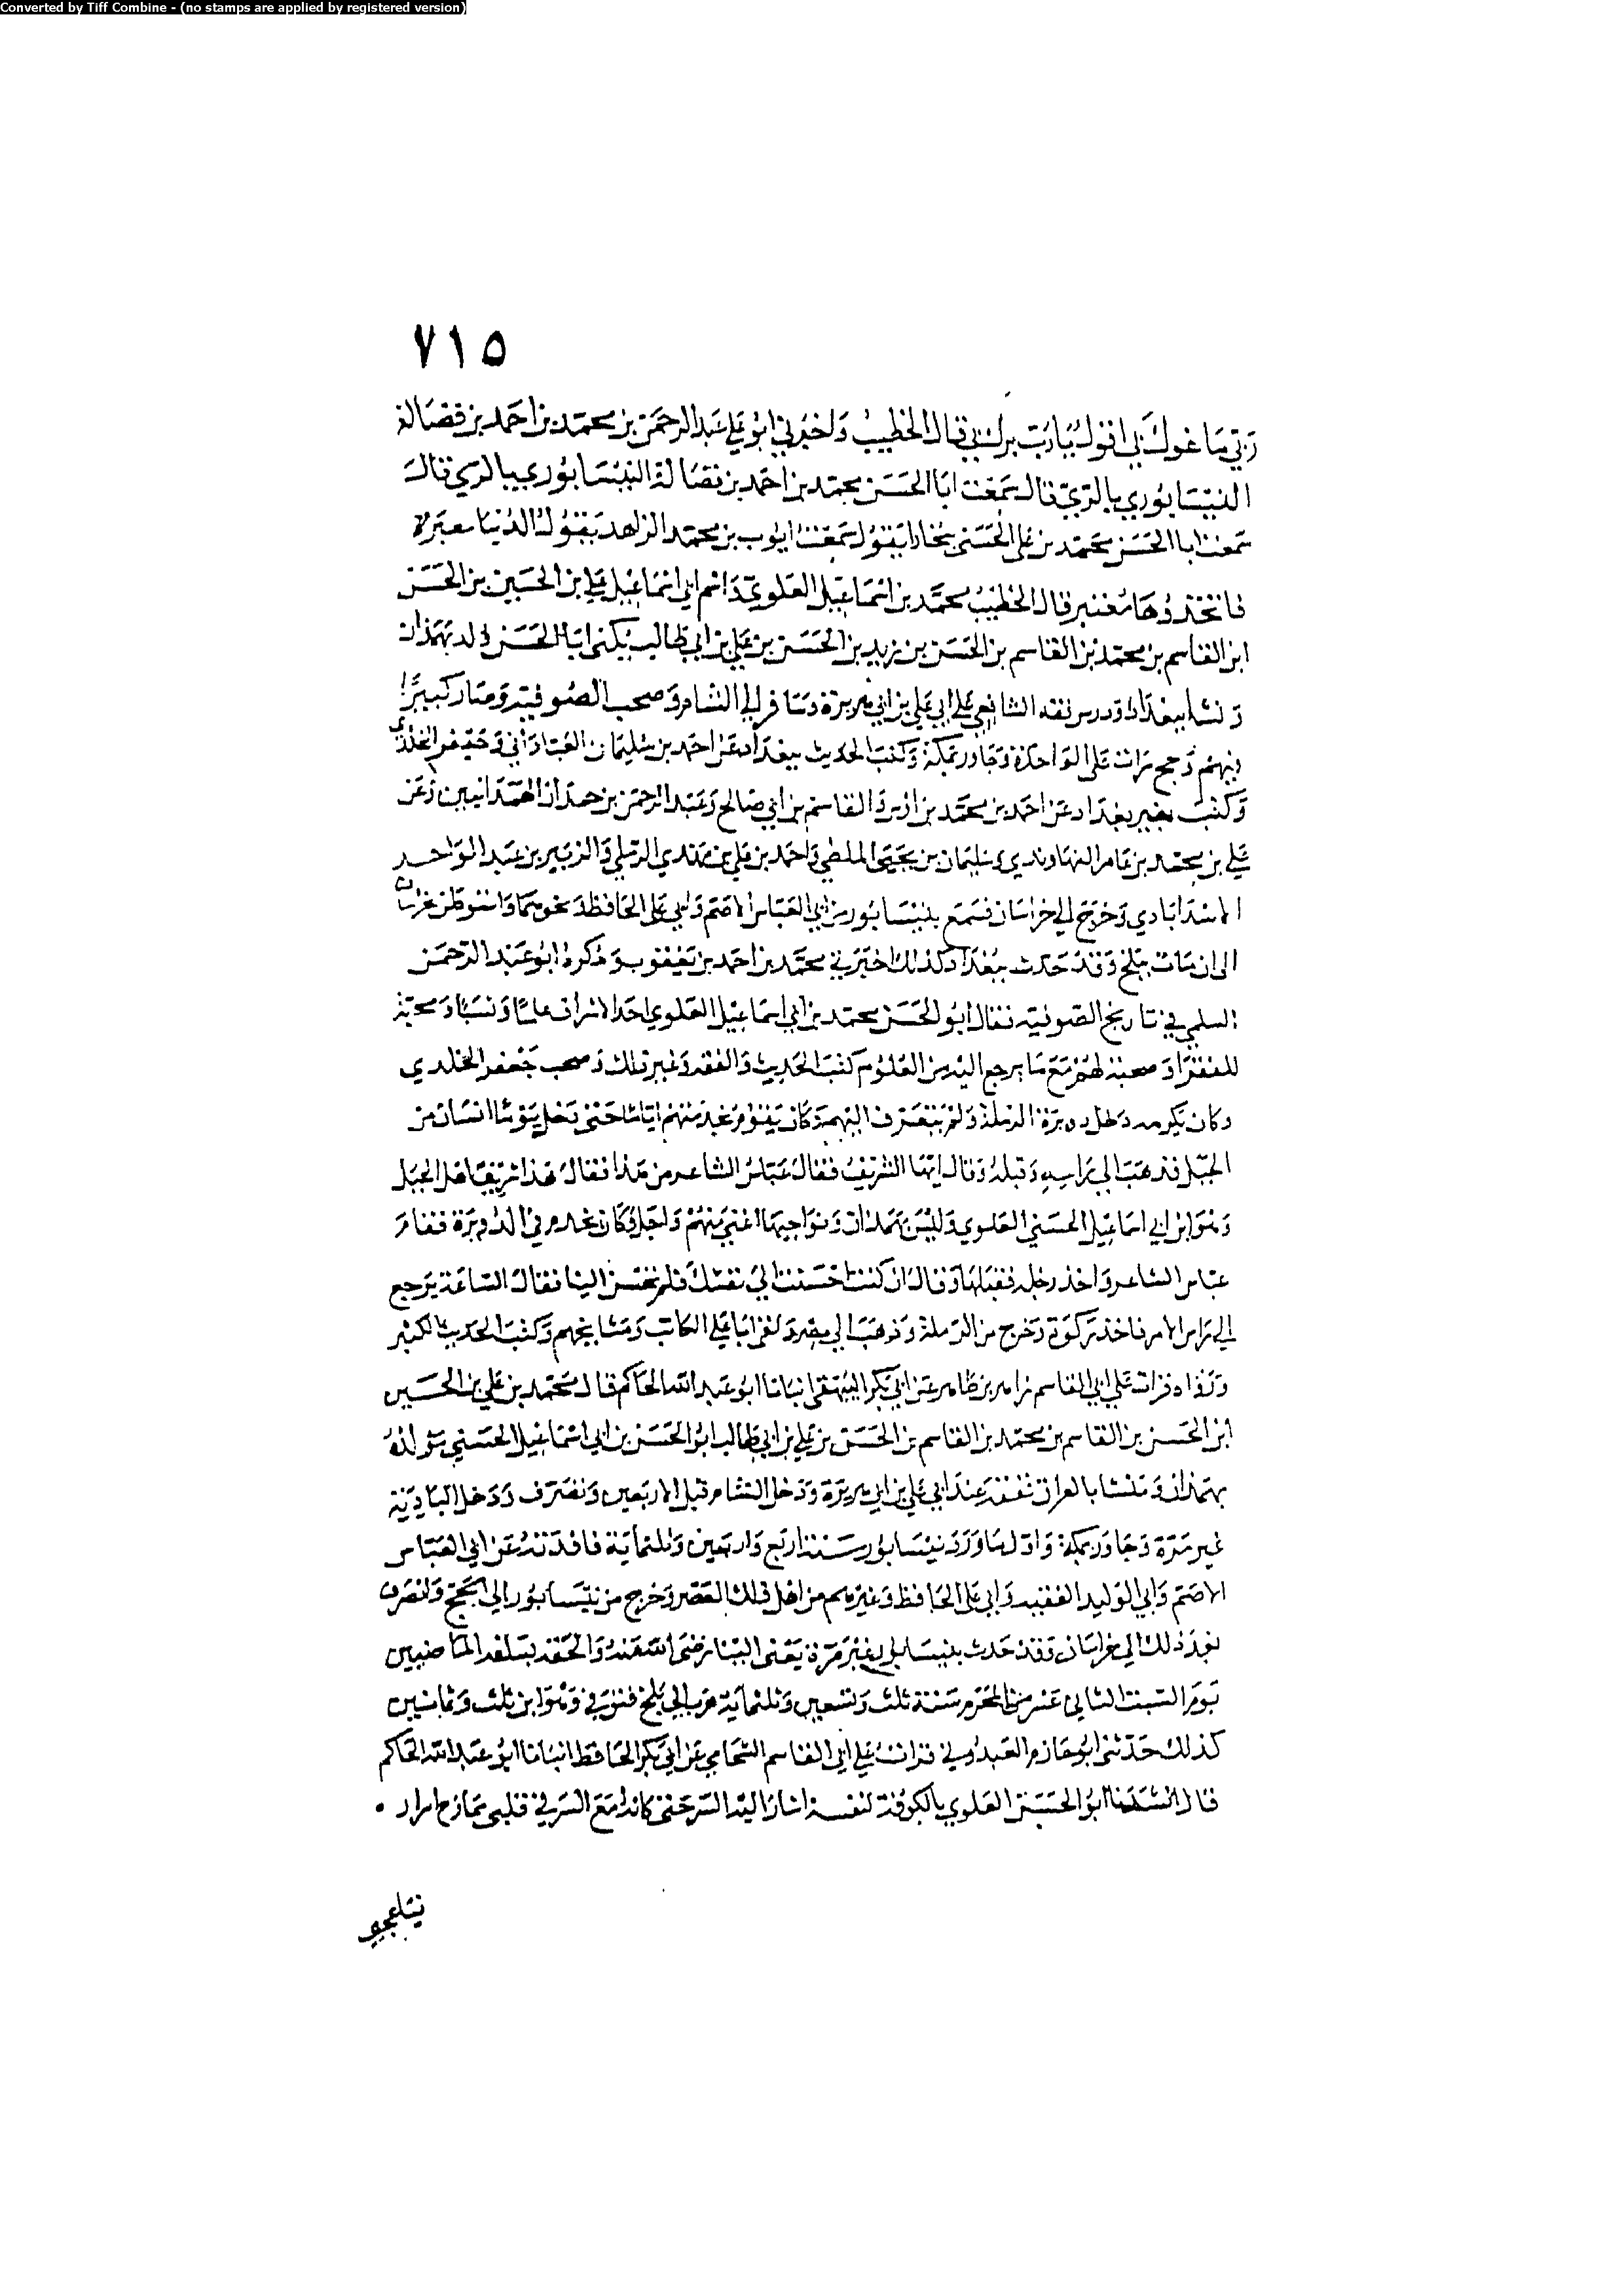 Converted by Tiff Combine - (no stamps are applied by registered version)
٧١٥
ربي ما غرك بي اقول يا رب برك بي قال الخطيب واخبرني ابو علي عبد الرحمن بن محمد بن احمد بن فضالة
النيسابوري بالري قال سمعت ابا الحسن محمد بن احمد بن فضالة النيسابوري بالري قال
سمعت ابا الحسن محمد بن علي الحسني ببخارا يقول سمعت ايوب بن محمد الزاهد يقول الدنيا معبرة
فاتخذوها معتبر قال الخطيب محمد بن اسماعيل العلوي واسم ابي اسماعيل علي بن الحسين بن الحسن
ابن القاسم بن محمد بن القاسم بن الحسن بن زيد بن الحسن بن علي بن ابي طالب يكنى ابا الحسن ولد بهمذان
ونشا ببغداد ودرس فقه الشافعي على ابي علي بن ابي هريرة وسافر الى الشام وصحب الصوفية وصار كبيرا
فيهم وحج مرات على الواحدة وجاور بمكة وكتب الحديث ببغداد عن احمد بن سليمان العباداني وجعفر الخلدي
وكتب بغير بغداد عن احمد بن محمد بن اوس والقاسم بن ابي صالح وعبد الرحمن بن حمدان الهمدانيين وعن
علي بن محمد بن عامر النهاوندي وسليمان بن يحيى الملطي واحمد بن علي بن مهدي الرملي والزبير بن عبد الواحد
الاسداباذي وخرج الى خراسان فسمع بنيسابور من ابي العباس الاصم وابي علي الحافظ ونحوهما واستوطن خراسان
الى ان مات ببلخ وقد حدث ببغداد كذلك اخبرني محمد بن احمد بن يعقوب وذكره ابو عبد الرحمن
السلمي في تاريخ الصوفية فقال ابو الحسن محمد بن ابي اسماعيل العلوي احد الاشراف علما ونسبا ومحبة
للفقرا وصحبة لهم مع ما يرجع اليه من العلوم كتب الحديث والفقه وغير ذلك وصحب جعفر الخلدي
وكان يكرمه دخل دويرة الرملة ولم يتعرف اليهم وكان يقوم بخدمتهم اياما حتى دخل يوما انسان من
الجبل فذهب الى راسه وقبله وقال ايها الشريف فقال عباس الشاعر من هذا فقال هذا شريف اهل الجبل
وهو ابن ابي اسماعيل الحسني العلوي وليس بهمدان ونواحيها اغنى منهم واجل وكان يخدم في الدويرة فقام
عباس الشاعر واخذ رجله فقبلها وقال ان كنت احسنت الى نفسك فلم تحسن الينا فقال الساعة يرجع
الى راس الامر فاخذ ركوة وخرج من الرملة وذهب الى مصر ولقي ابا علي الكاتب ومشايخهم وكتب الحديث الكثير
ورواه قرات على ابي القاسم زاهر بن طاهر عن ابي بكر البيهقي انبانا ابو عبد الله الحاكم قال محمد بن علي بن الحسين
ابن الحسن بن القاسم بن محمد بن القاسم بن الحسن بن علي بن ابي طالب ابو الحسن بن ابي اسماعيل الحسني مولده
بهمذان ومنشا بالعراق تفقه عند ابي علي بن ابي هريرة ودخل الشام قبل الاربعين وتصرف ودخل البادية
غير مرة وجاور بمكة واول ما ورد نيسابور سنة اربع واربعين وثلثماية فافدته عن ابي العباس
الاصم وابي الوليد الفقيه وابي علي الحافظ وغيرهم من اهل ذلك العصر وخرج من نيسابور الى الحج وانصرف
بعد ذلك الى خراسان وقد حدث بنيسابور غير مرة يعنى الينا رضي الله عنه والحقه بسلفه الماضيين
يوم السبت الثاني عشر من المحرم سنة ثلث وتسعين وثلثماية قرب الى بلخ فتوفي وهو ابن ثلث وثمانين
كذلك حدثني ابو حازم العبدوي قرات على ابي القاسم الشحامي عن ابي بكر الحافظ انبانا ابو عبد الله الحاكم
قال انشدنا ابو الحسن العلوي بالكوفة لنفسه اشار اليه السر حتى كاد مع السر في قلبي يمازح اسرار